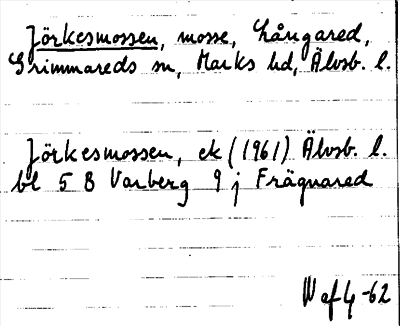 Jörkesmossen, mosse, Långared,
Grimmareds sn, Marks hd, Älvsb. l.
Jörkesmossen, ek (1961) Älvsb. l.
bl 5 B Varberg 9 j Frägnared
W af 4-62